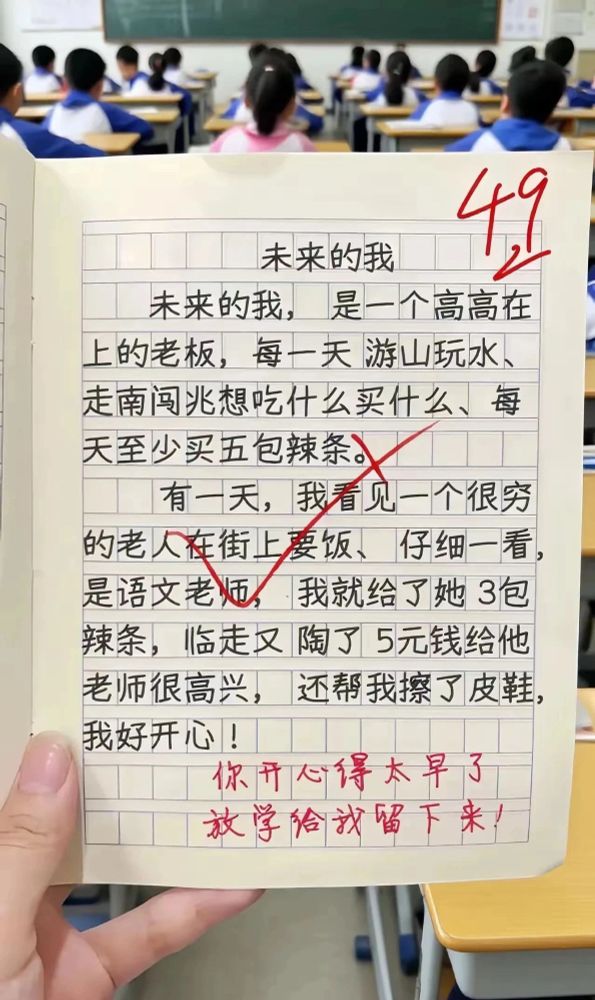 49
2
未来的我
未来的我， 是一个高高在
上的老板，每一天 游山玩水、
走南闯兆想吃什么买什么、每
天至少买五包辣条。
有一天，我看见一个很穷
的老人在街上要饭、 仔细一看，
是语文老师， 我就给了她 3包
辣条，临走又 陶了 5元钱给他
老师很高兴， 还帮我擦了皮鞋，
我好开心！
你开心得太早了
放学给我留下来！